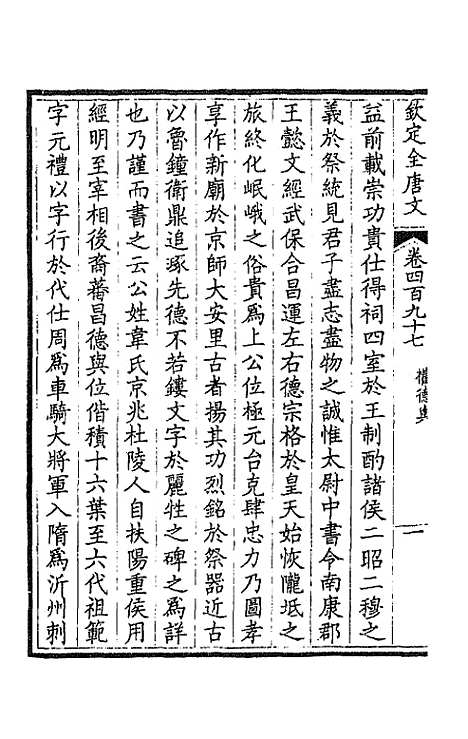 欽定全唐文 卷四百九十七 權德輿 一
益前載崇功貴仕得祠四室於王制酌諸侯二昭二穆之
義於祭統見君子盡志盡物之誠惟太尉中書令南康郡
王懿文經武保合昌運左右德宗格於皇天始恢隴坻之
旅終化岷峨之俗貴為上公位極元台克肆忠力乃圖孝
享作新廟於京師大安里古者揚其功烈銘於祭器近古
以魯鐘衛鼎追琢先德不若鏤文字於麗牲之碑之為詳
也乃謹而書之云公姓韋氏京兆杜陵人自扶陽重侯用
經明至宰相後裔蕃昌德與位偕積十六葉至六代祖範
字元禮以字行於代仕周為車騎大將軍入隋為沂州刺